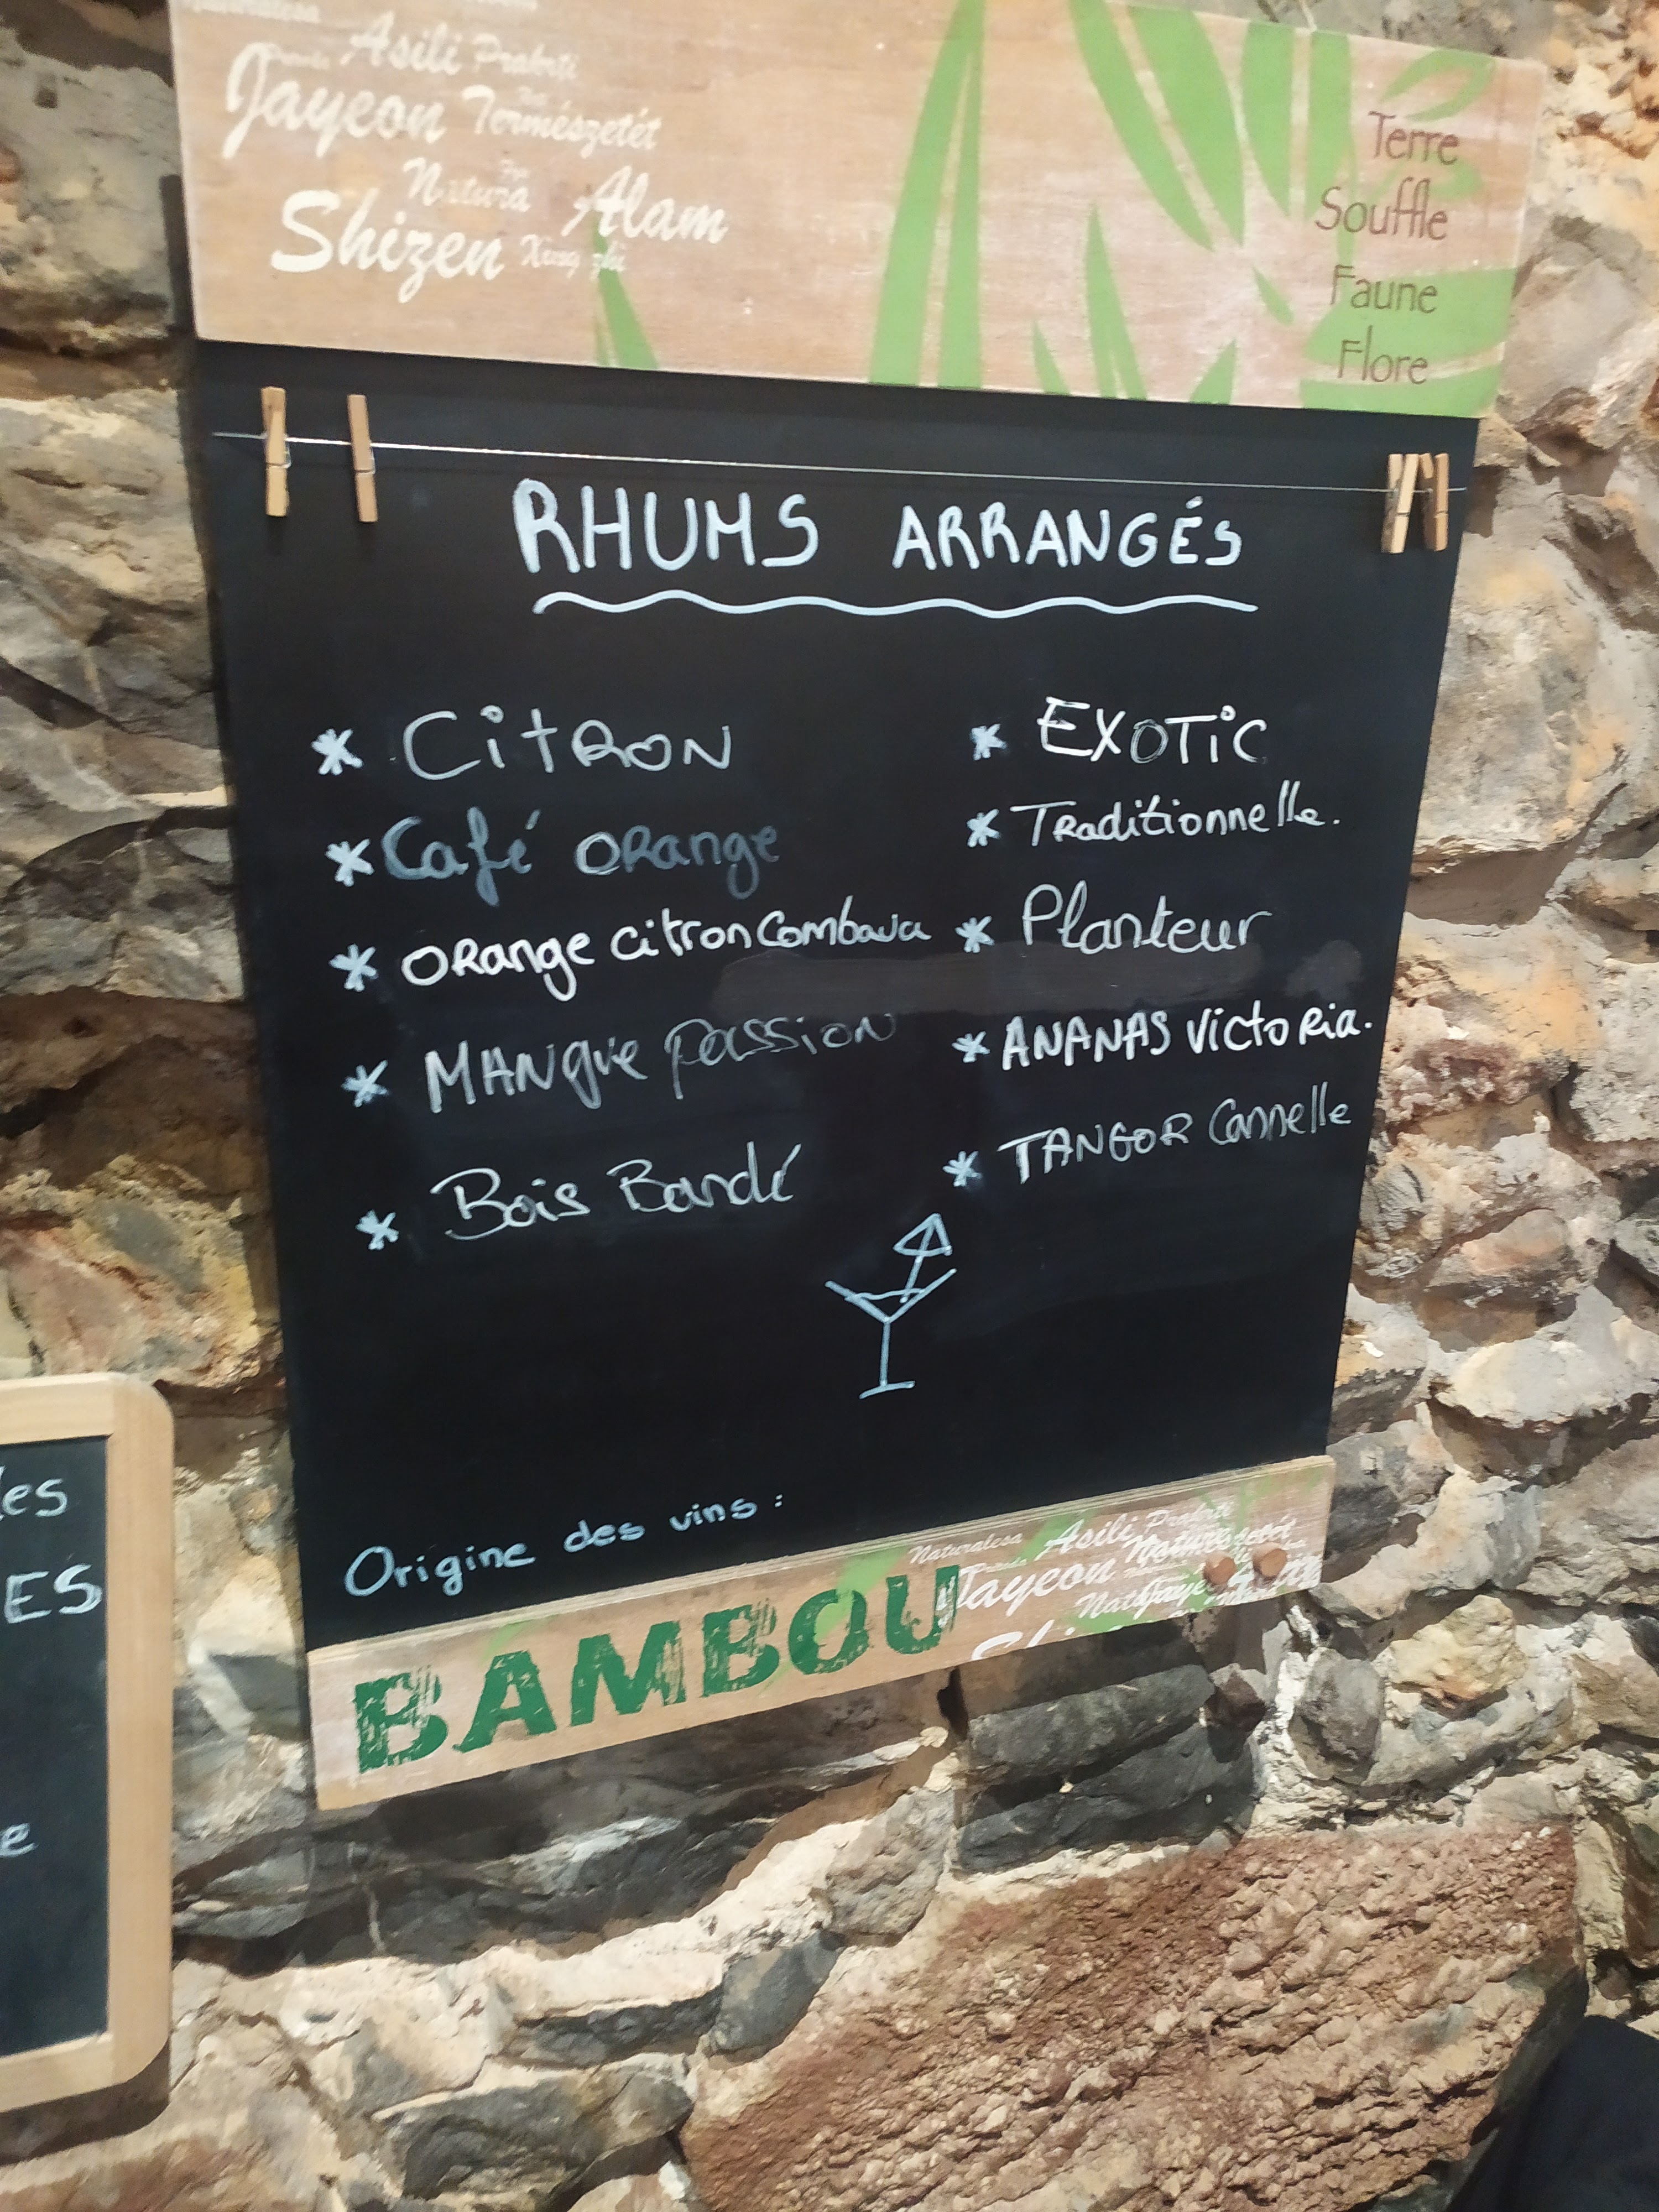 Asili Prakriti
Jayeon Természetét
Natura Alam
Shizen Xing zhi
Terre
Souffle
Faune
Flore
RHUMS ARRANGÉS
* CitRON
* Café ORange
* ORange citron Combava
* MANgue passion
* Bois Bandé
* EXOTiC
* TRaditionnelle.
* Planteur
* ANANAS VictoRia.
* TANGOR Cannelle
Origine des vins :
BAMBOU
Naturalesa Asili Prakriti
Jayeon
es
ES
e